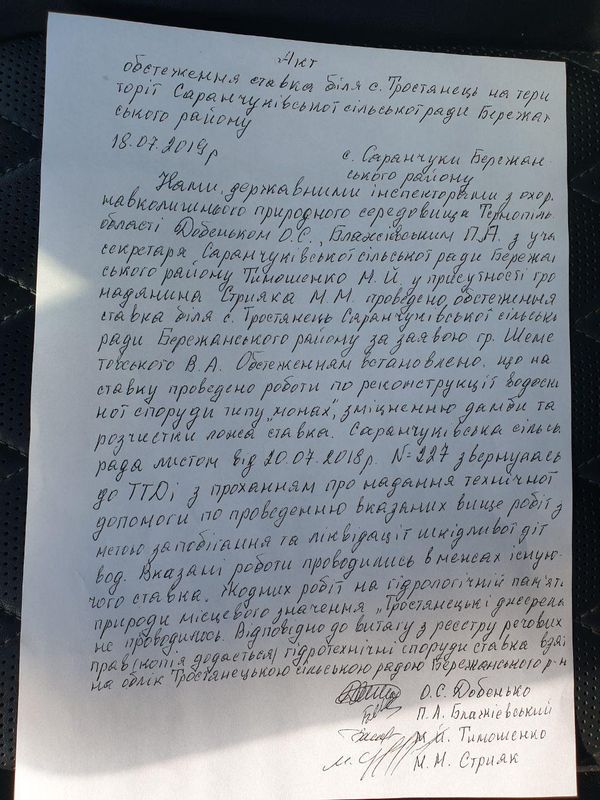 Акт
обстеження ставка біля с. Тростянець на тери
торії Саранчуківської сільської ради Бережан
ського району
18.07.2019р
с. Саранчуки Бережан-
ського району
Нами, державними інспекторами з охор.
навколишнього природного середовища Тернопіль
області Добеньком О.С., Блажієвським П.А. з уча
секретаря Саранчуківської сільської ради Бережан
ського району Тимошенко М.Й. у присутності гро
мадянина Стрияка М.М. проведено обстеження
ставка біля с. Тростянець Саранчуківської сільсько
ради Бережанського району за заявою гр. Шеме
товського В.А. Обстеженням встановлено, що на
ставку проведено роботи по реконструкції водоски
ної споруди типу „монах", зміцненню дамби та
розчистки ложа ставка. Саранчуківська сільсь
рада листом від 20.07.2018р. №227 звернулась
до ТТДі з проханням про надання технічної
допомоги по проведенню вказаних вище робіт з
метою запобігання та ліквідації шкідливої дії
вод. Вказані роботи проводились в межах існую-
чого ставка. Жодних робіт на гідрологічній пам'ят
природи місцевого значення „Тростянецькі джерела
не проводилось. Відповідно до витягу з реєстру речових
прав (копія додається) гідротехнічні споруди ставка взят
на облік Тростянецькою сільською радою Бережанського р-н
О.С. Добенько
П.А. Блажієвський
М.Й. Тимошенко
М.М. Стрияк